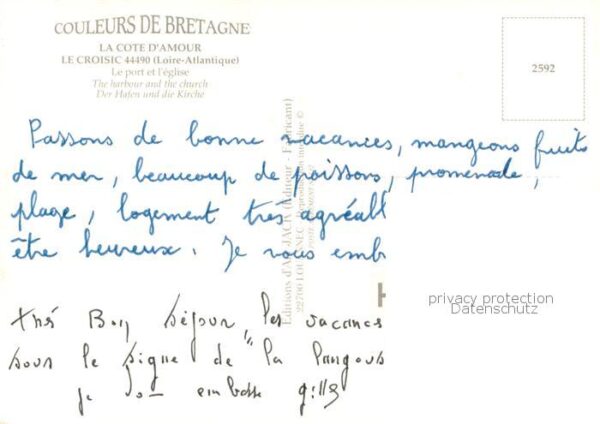 COULEURS DE BRETAGNE
LA COTE D'AMOUR
LE CROISIC 44490 (Loire-Atlantique)
Le port et l'église
The harbour and the church
Der Hafen und die Kirche
2592
Passons de bonne vacances, mangeons fruits
de mer, beaucoup de poissons, promenade,
plage, logement très agréabl
être heureux. Je vous emb
très Bon séjour, les vacances
sous le signe de "la langous
je vous embrasse gilles
Editions d'Art JACK (Editeur - Fabricant)
privacy protection
Datenschutz